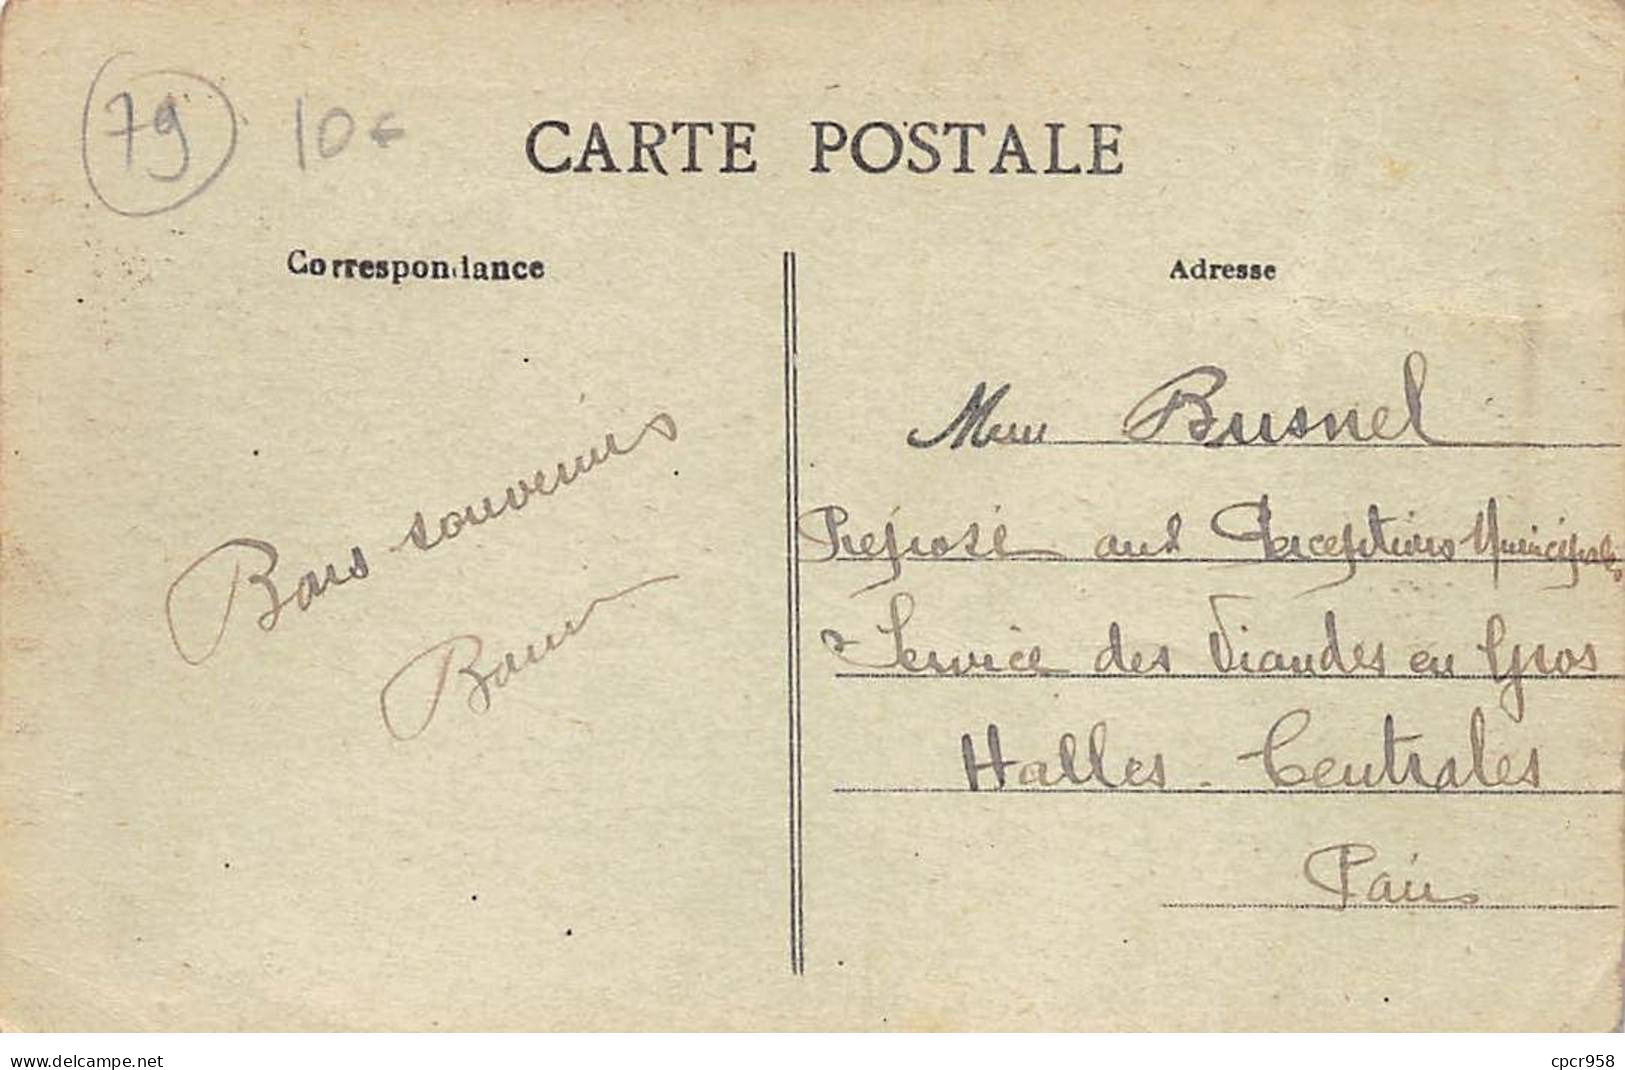 79 10€
CARTE POSTALE
Correspondance
Adresse
Bons souvenirs
Mme Busnel
Préposé aux Perceptions Municipales
Service des Viandes en Gros
Halles Centrales
Paris
www.delcampe.net
cpcr958